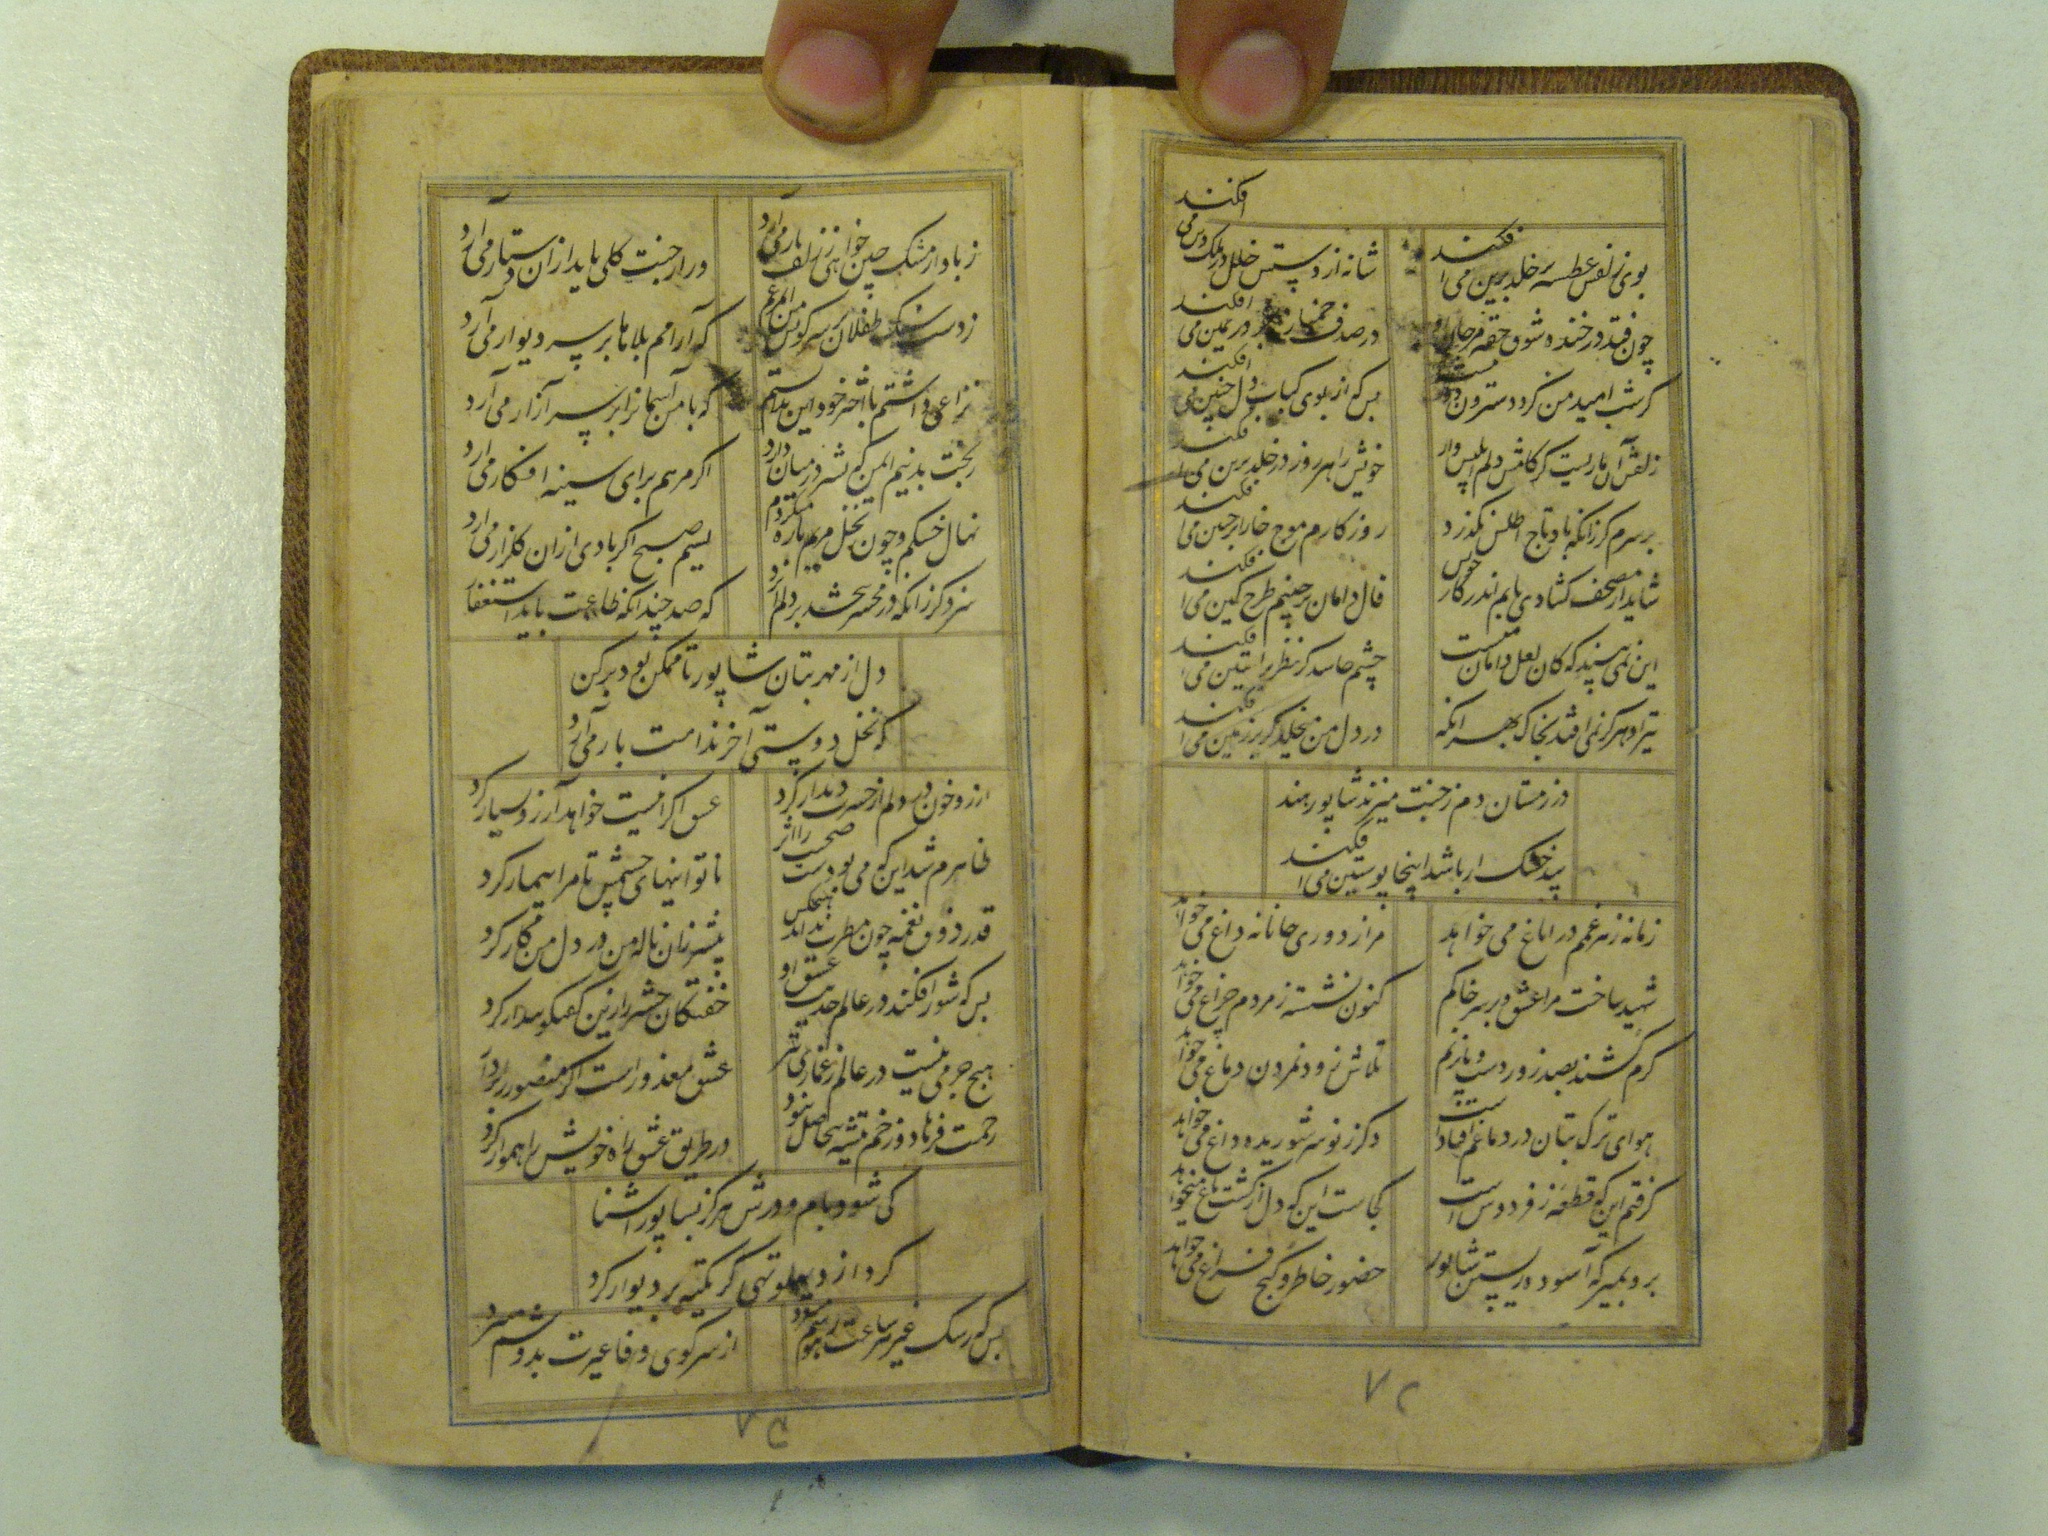 افکند
بوی زلفش عطسه بر خلد برین می افکند
شانه از دستش خلل در ملک می افکند
چون فتد در خنده شوق حقه مرجان او
در صدف در یمین می افکند
کر شب امید من کردد سترون دور نیست
بس که از بوی کباب دل چنین می افکند
زلفش آن ماریست کز کامش دلم ابلیس وار
خویش را هر روز در خلد برین می افکند
بر سرم کرزانکه باد تاج اطلس نکذرد
روزکارم موج خارا بر جبین می افکند
شاید از مصحف کشادی یابم اندر کار خویش
فال دامان بر چینم طرح کین می افکند
این نمی بیند که کان لعل دامان منست
چشم حاسد کر نظر بر آستین می افکند
تیر او هرکز نمی افتد بخاک بهر آنکه
در دل من میخلد کر بر زمین می افکند
در زمستان دم ز جنت میزند شاپور هند
بید خشک ار باشد اینجا پوستین می افکند
زمانه زهر غمم در ایاغ می خواهد
مرا ز دوری جانانه داغ می خواهد
شهید ساخت مرا عشق و بر سر خاکم
کنون نشسته ز مردم چراغ می خواهد
کرم کشند بصد زور دست و پا نزنم
تلاش زود نمردن دماغ می خواهد
هوای ترک بتان در دماغم افتادست
دکر ز نو سر شوریده داغ می خواهد
کرفتم این که قطعه ز فردوس است
کجاست این که دل از کشت باغ میخواهد
برو بمیر که آسوده زیستن شاپور
حضور خاطر و کنج فراغ می خواهد
ز باد از مشک چین خواهی ز زلف یار می آرد
ور از جنت کلی باید از ان دستار می آرد
ز دست سنک طفلان سر کویش من
که آرامم بلاها بر سر دیوار می آرد
نزاعی داشتم با اختر خود این ندانستم
که با من آسمانرا بر سر آزار می آرد
ز بخت بد نیم ایمن که نشتر در میان دارد
اکر مرهم برای سینه افکار می آرد
نهال خشکم و چون نخل مریم تازه میکردم
نسیم صبح اکر بادی از ان کلزار می آرد
سزد کرزانکه در محشر ببخشد بر دلم
که صد چندانکه طاعت باید استغفار
دل از مهر بتان شاپور تا ممکن بود برکن
که نخل دوستی آخر ندامت بار می آرد
ارزو خون در دلم از حسرت دیدار کرد
عشق اکر اینست خواهد آرزو بسیار کرد
ظاهرم شد این که می بودست صحبت را اثر
ناتوانیهای چشمش تا مرا بیمار کرد
قدر ذوق نغمه چون مطرب نداند هیچکس
بیشتر زان ناله من در دل من کار کرد
بس که شور افکند در عالم حدیث عشق او
خفتکان حشر را زین کفتکو بیدار کرد
هیچ جرمی نیست در عالم ز غمازی بتر
عشق معذور است اکر منصور را بردار
زحمت فرهاد و زخم تیشه بیحاصل نبود
در طریق عشق راه خویش را هموار کرد
کی شود بام و درش هرکز بشاپور آشنا
کرد از پهلو تهی کر تکیه بر دیوار کرد
بس که رشک غیر هر ساعت
از سر کوی وفا غیرت بدوشم میبرد
۷۲